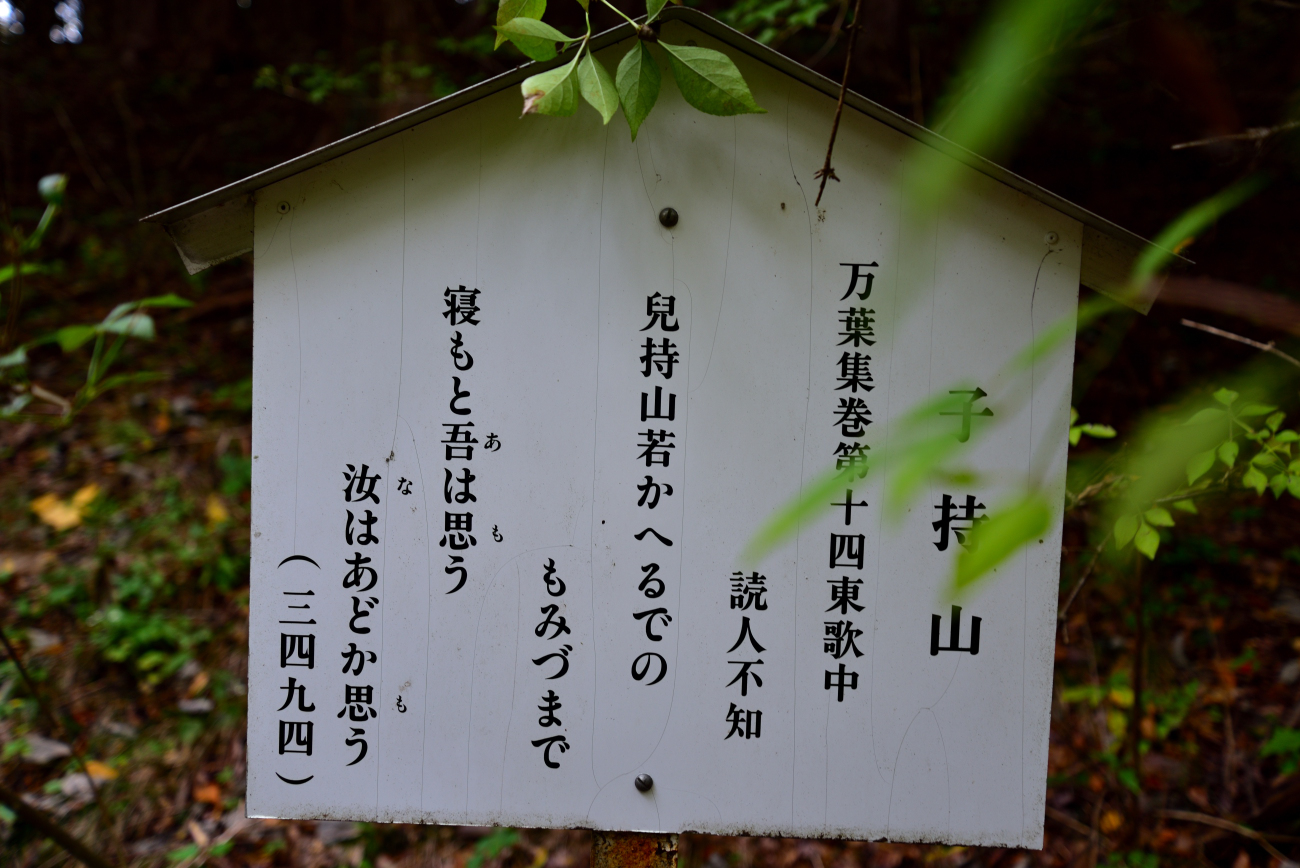 子持山
万葉集巻第十四東歌中
読人不知
兒持山若かへるでの
もみづまで
寝もと吾は思う
あ
も
汝はあどか思う
な
も
（三四九四）